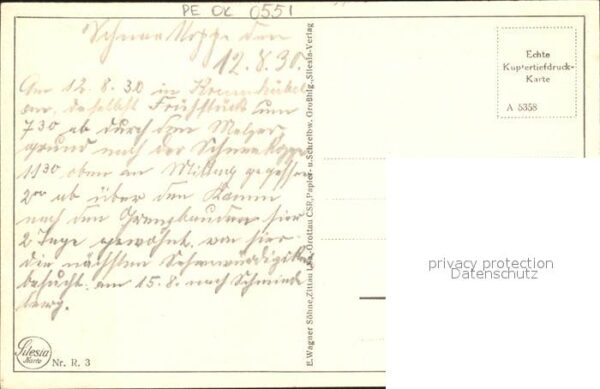 PE OK 0551
Schneekoppe den
12.8.30.
Am 12.8.30 in Krummhübel
an, daselbst Frühstück um
7 30 ab durch den Melzer
grund nach der Schneekoppe
11 30 oben an Mittag gegessen
2 00 ab über den Kamm
nach den Grenzbauden hier
2 Tage gewohnt, von hier
die nächsten Sehenswürdigk
besucht. am 15.8. nach Schmiede
berg.
Silesia
Karte
Nr. R. 3
E. Wagner Söhne, Zittau i. Sa., Grottau CSR, Papier- u. Schreibw. Großhdlg., Silesia-Verlag
Echte
Kupfertiefdruck-
Karte
A 5358
privacy protection
Datenschutz